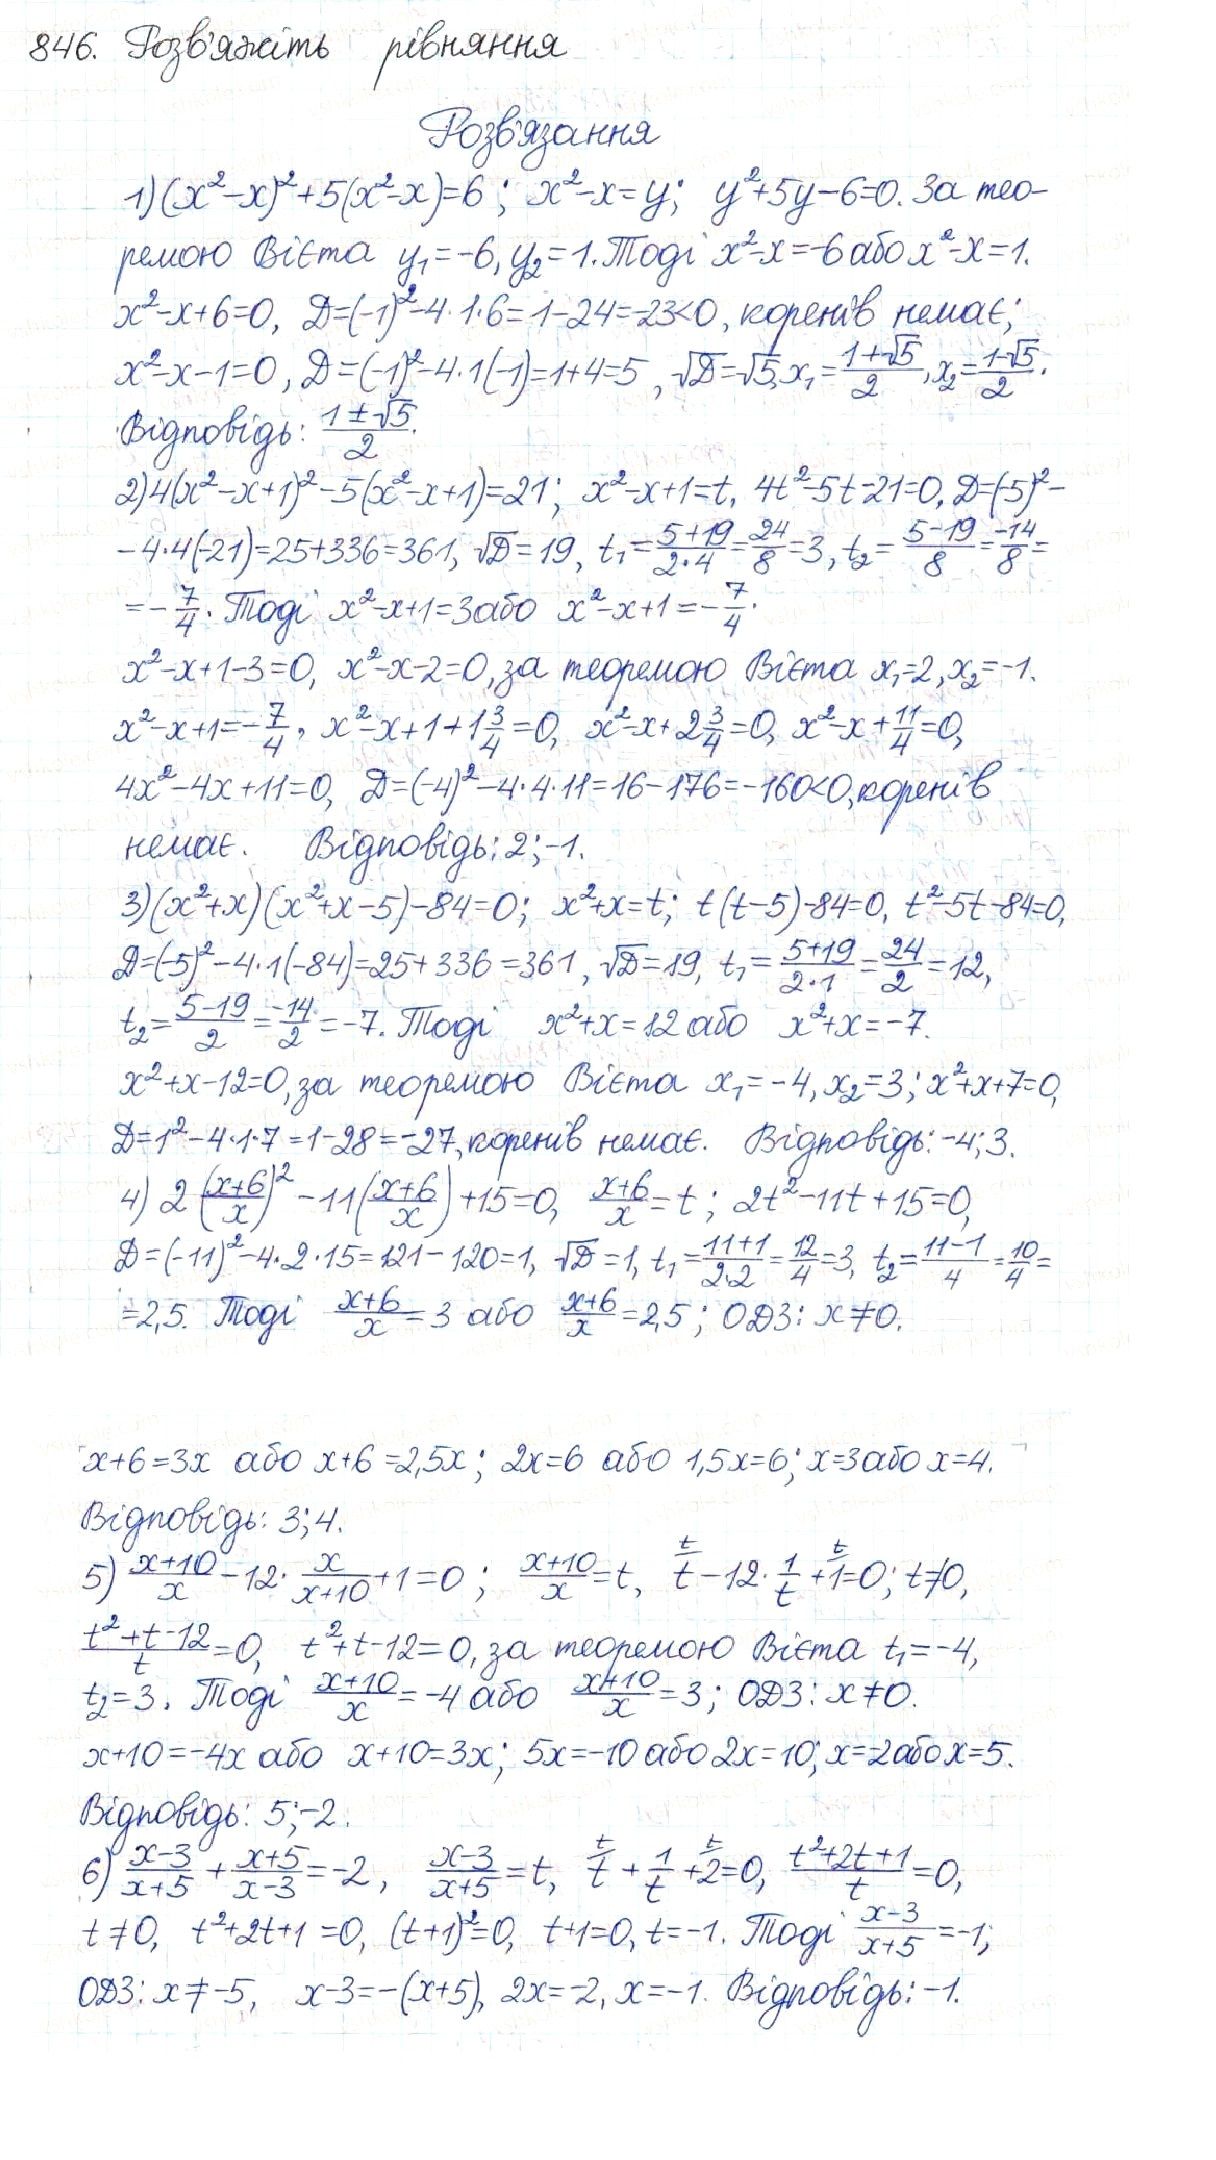 846. Розв'яжіть рівняння
Розв'язання
1) (x²-x)²+5(x²-x)=6; x²-x=y; y²+5y-6=0. За тео-
ремою Вієта y₁=-6, y₂=1. Тоді x²-x=-6 або x²-x=1.
x²-x+6=0, D=(-1)²-4·1·6=1-24=-23<0, коренів немає;
x²-x-1=0, D=(-1)²-4·1(-1)=1+4=5, √D=√5, x₁=(1+√5)/2, x₂=(1-√5)/2.
Відповідь: (1±√5)/2.
2) 4(x²-x+1)²-5(x²-x+1)=21; x²-x+1=t, 4t²-5t-21=0, D=(-5)²-
-4·4(-21)=25+336=361, √D=19, t₁=(5+19)/(2·4)=24/8=3, t₂=(5-19)/8=-14/8=
=-7/4. Тоді x²-x+1=3 або x²-x+1=-7/4.
x²-x+1-3=0, x²-x-2=0, за теоремою Вієта x₁=2, x₂=-1.
x²-x+1=-7/4, x²-x+1+1 3/4=0, x²-x+2 3/4=0, x²-x+11/4=0,
4x²-4x+11=0, D=(-4)²-4·4·11=16-176=-160<0, коренів
немає. Відповідь: 2; -1.
3) (x²+x)(x²+x-5)-84=0; x²+x=t; t(t-5)-84=0, t²-5t-84=0,
D=(-5)²-4·1(-84)=25+336=361, √D=19, t₁=(5+19)/(2·1)=24/2=12,
t₂=(5-19)/2=-14/2=-7. Тоді x²+x=12 або x²+x=-7.
x²+x-12=0, за теоремою Вієта x₁=-4, x₂=3; x²+x+7=0,
D=1²-4·1·7=1-28=-27, коренів немає. Відповідь: -4; 3.
4) 2((x+6)/x)²-11((x+6)/x)+15=0, (x+6)/x=t; 2t²-11t+15=0,
D=(-11)²-4·2·15=121-120=1, √D=1, t₁=(11+1)/(2·2)=12/4=3, t₂=(11-1)/4=10/4=
=2,5. Тоді (x+6)/x=3 або (x+6)/x=2,5; ОДЗ: x≠0.
x+6=3x або x+6=2,5x; 2x=6 або 1,5x=6; x=3 або x=4.
Відповідь: 3; 4.
5) (x+10)/x-12·x/(x+10)+1=0; (x+10)/x=t, t/t-12·1/t+1=0; t≠0,
(t²+t-12)/t=0, t²+t-12=0, за теоремою Вієта t₁=-4,
t₂=3. Тоді (x+10)/x=-4 або (x+10)/x=3; ОДЗ: x≠0.
x+10=-4x або x+10=3x; 5x=-10 або 2x=10; x=-2 або x=5.
Відповідь: 5; -2.
6) (x-3)/(x+5)+(x+5)/(x-3)=-2, (x-3)/(x+5)=t, t/t+1/t+2=0, (t²+2t+1)/t=0,
t≠0, t²+2t+1=0, (t+1)²=0, t+1=0, t=-1. Тоді (x-3)/(x+5)=-1;
ОДЗ: x≠-5, x-3=-(x+5), 2x=-2, x=-1. Відповідь: -1.